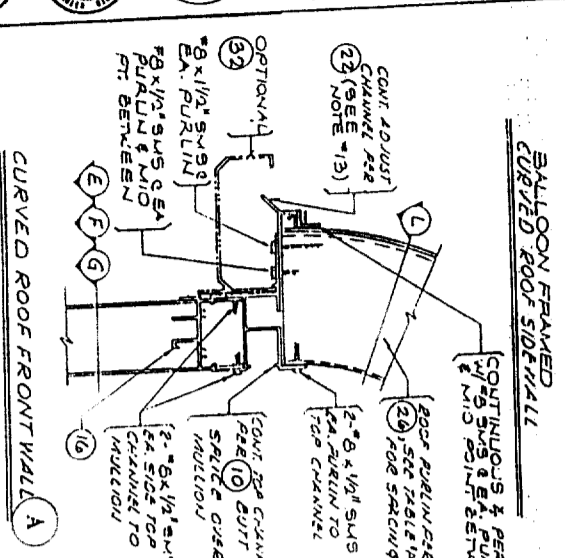 BALLOON FRAMED
CURVED ROOF SIDEWALL
CONT. ADJUST
CHANNEL PER
22 (SEE
NOTE #13)
OPTIONAL
32
#8 x 1/2" SMS @
EA. PURLIN
#8 x 1/2" SMS @ EA
PURLIN & MID
PT. BETWEEN
E
F
G
L
CONTINUOUS & PER
W/ #8 SMS @ EA. PU
& MID POINT BETW
ROOF PURLIN PER
26, SEE TABLE
FOR SPACING
2-#8 x 1/2" SMS
EA. PURLIN TO
TOP CHANNEL
CONT. TOP CHAN
PER 10 BUTT
SPLICE OVER
MULLION
2-#8 x 1/2" SM
EA. SIDE TOP
CHANNEL TO
MULLION
16
CURVED ROOF FRONT WALL A